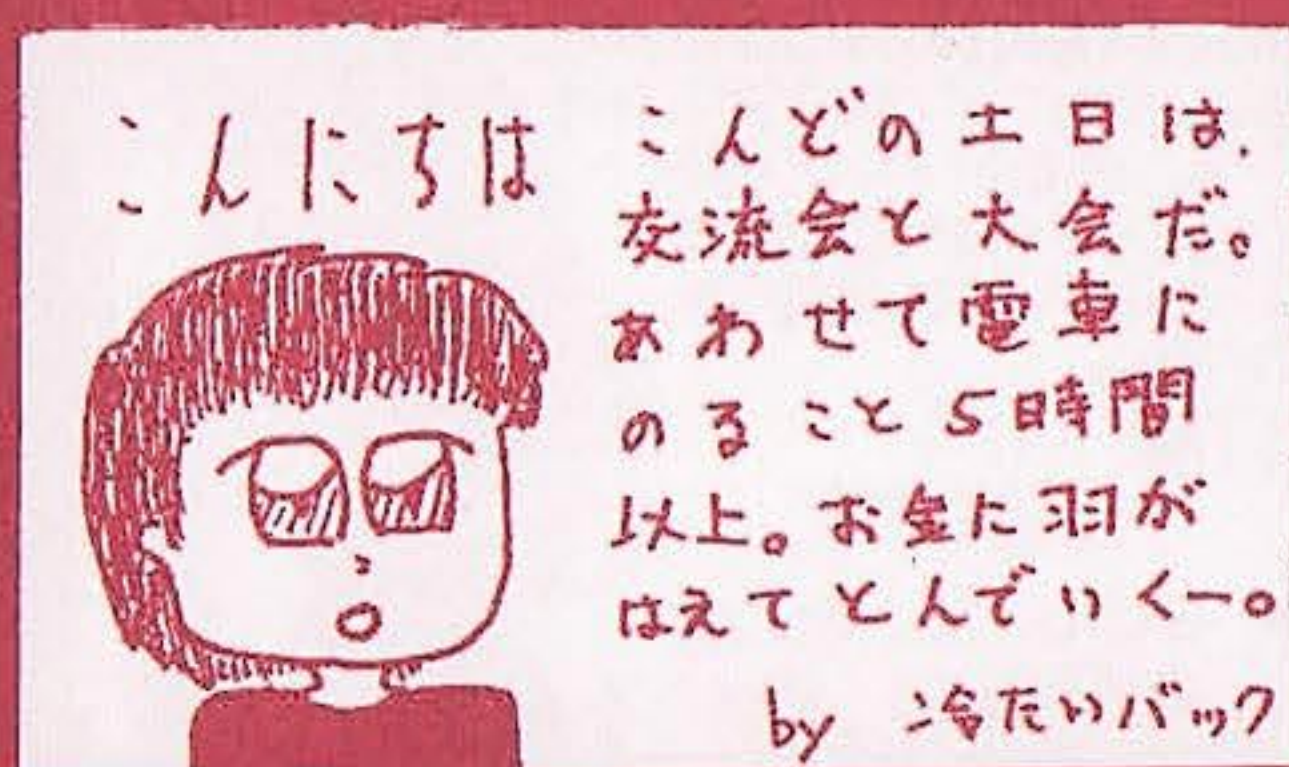 こんにちは
こんどの土日は、
交流会と大会だ。
あわせて電車に
のること5時間
以上。お金に羽が
はえてとんでいくー。
by 冷たいバック